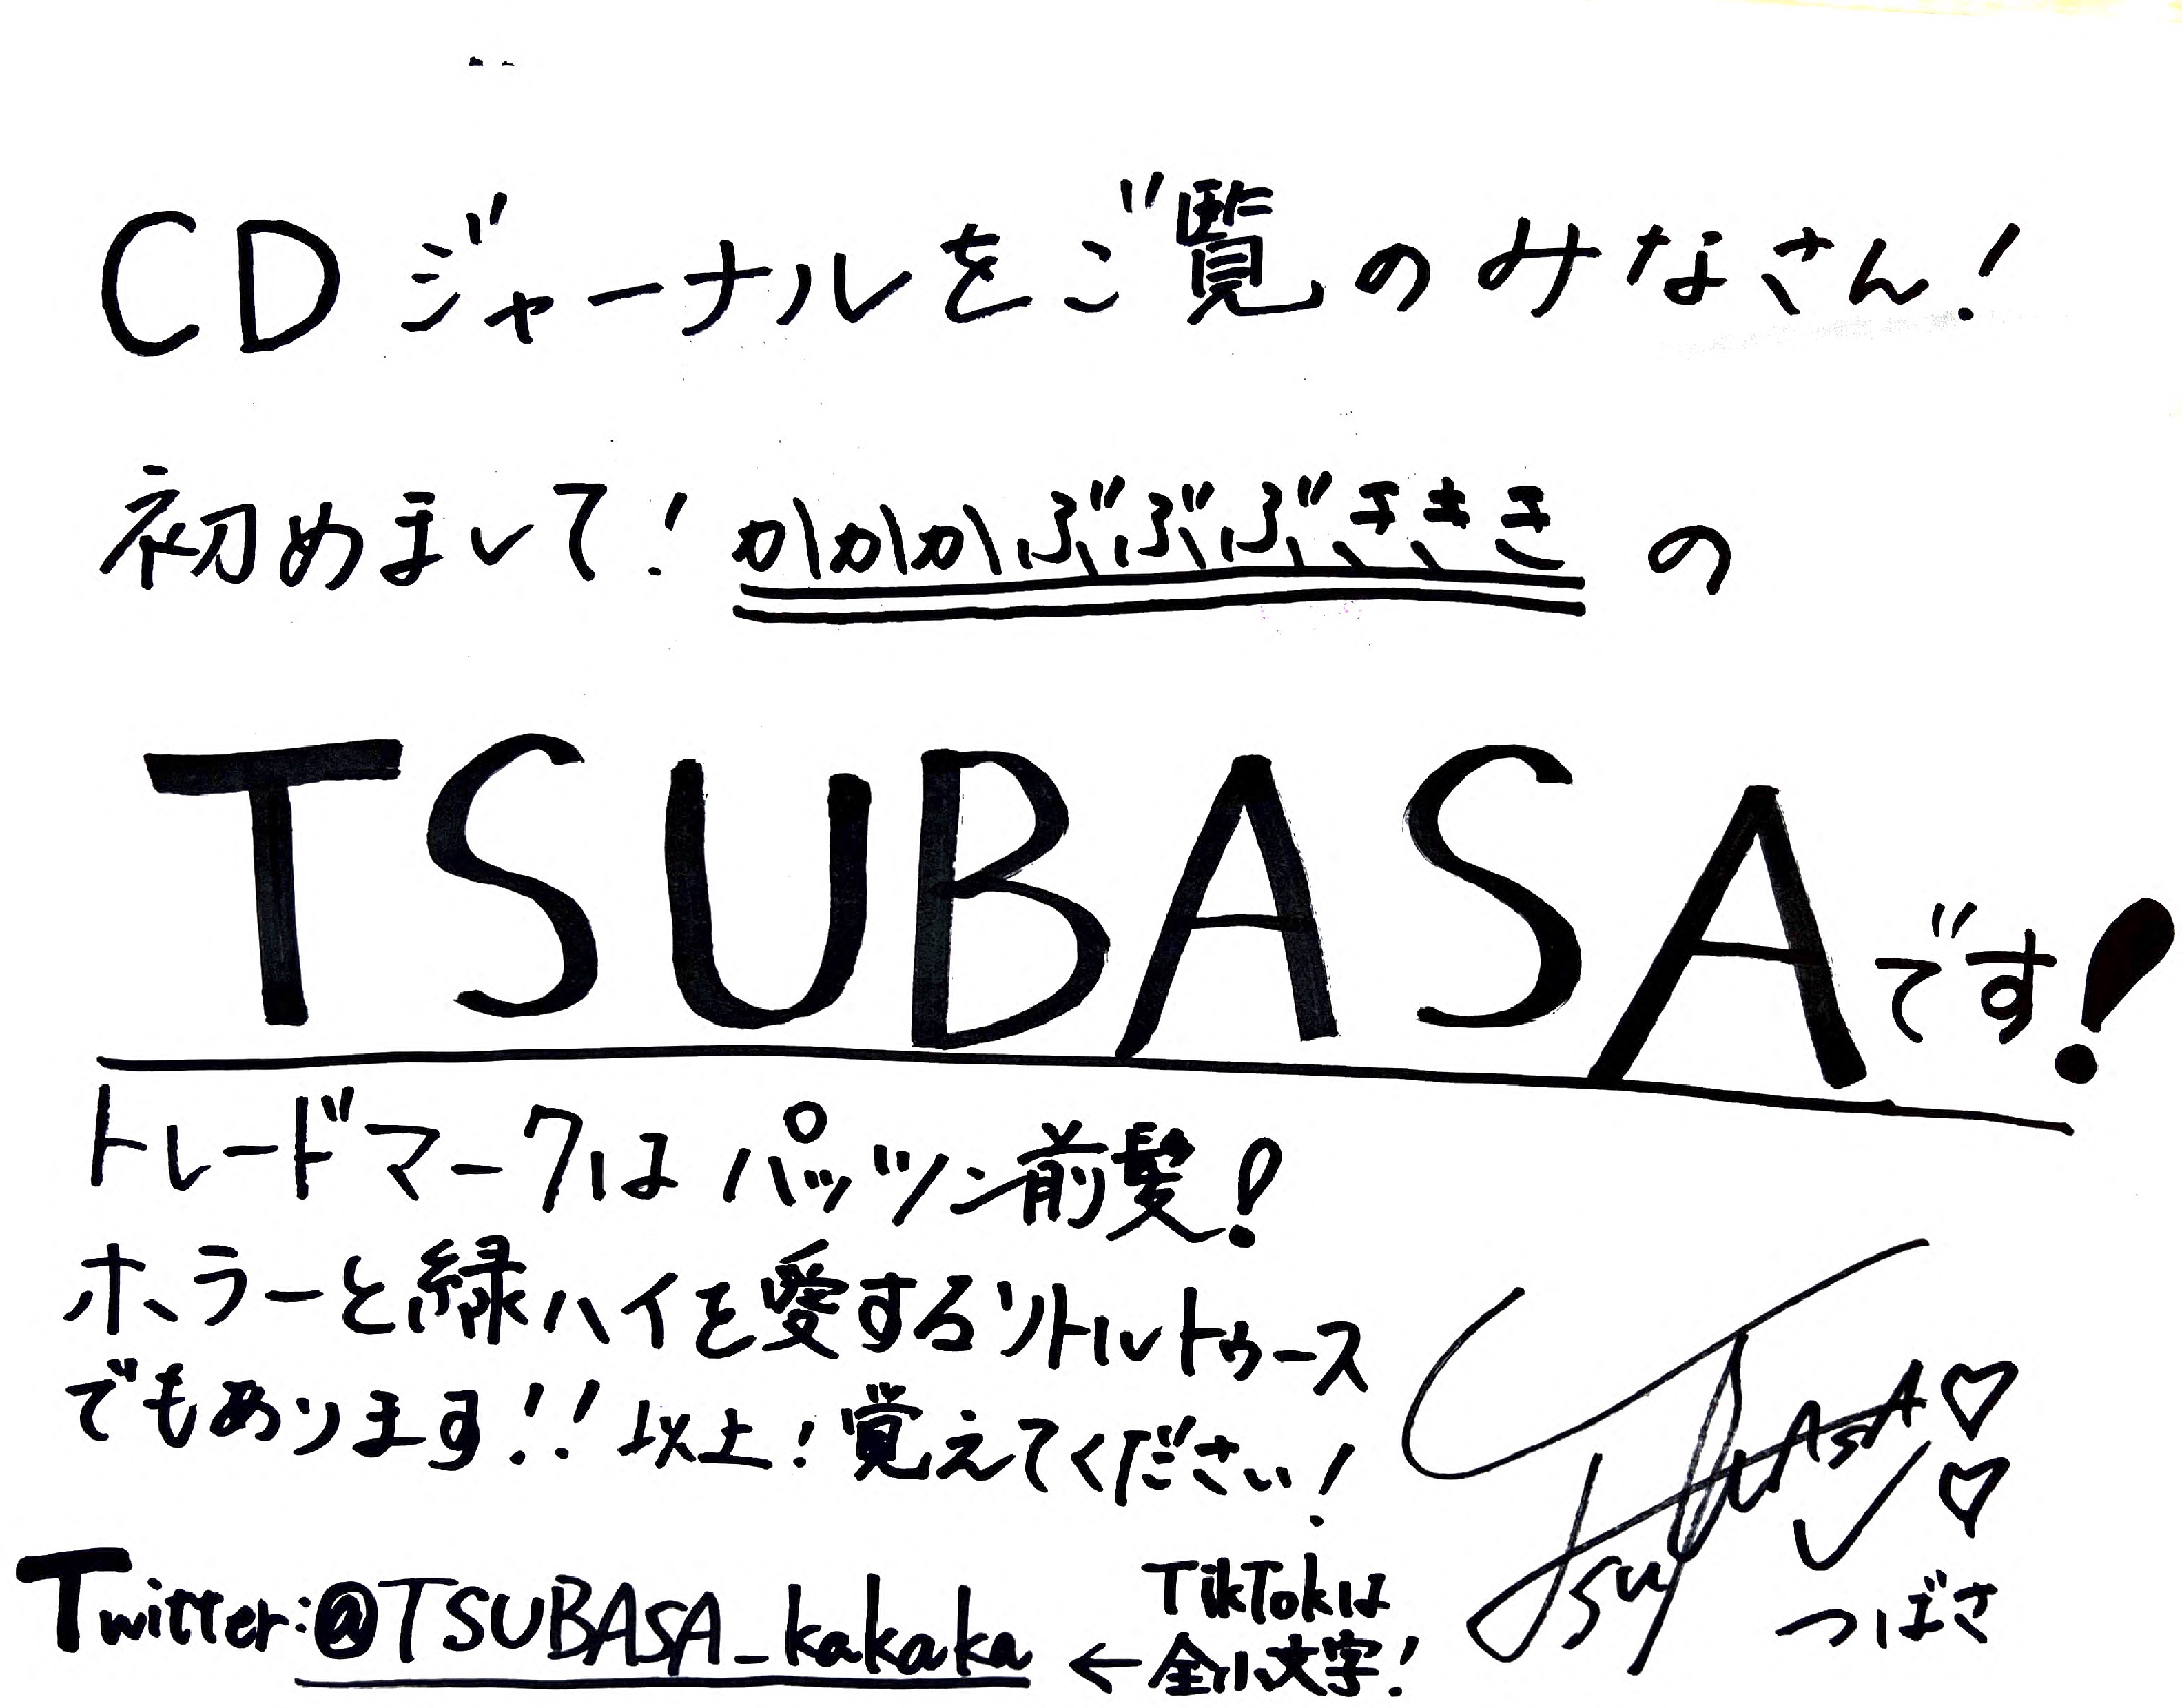 CDジャーナルをご覧のみなさん!
初めまして!かかかぶぶぶききき の
TSUBASAです!
トレードマークはパッツン前髪!
ホラーと緑ハイを愛するリトルトゥース
でもあります!!以上!覚えてください!
Twitter:@TSUBASA_kakaka
← TikTokは
全小文字!
TSUBASA♡
♡
つばさ